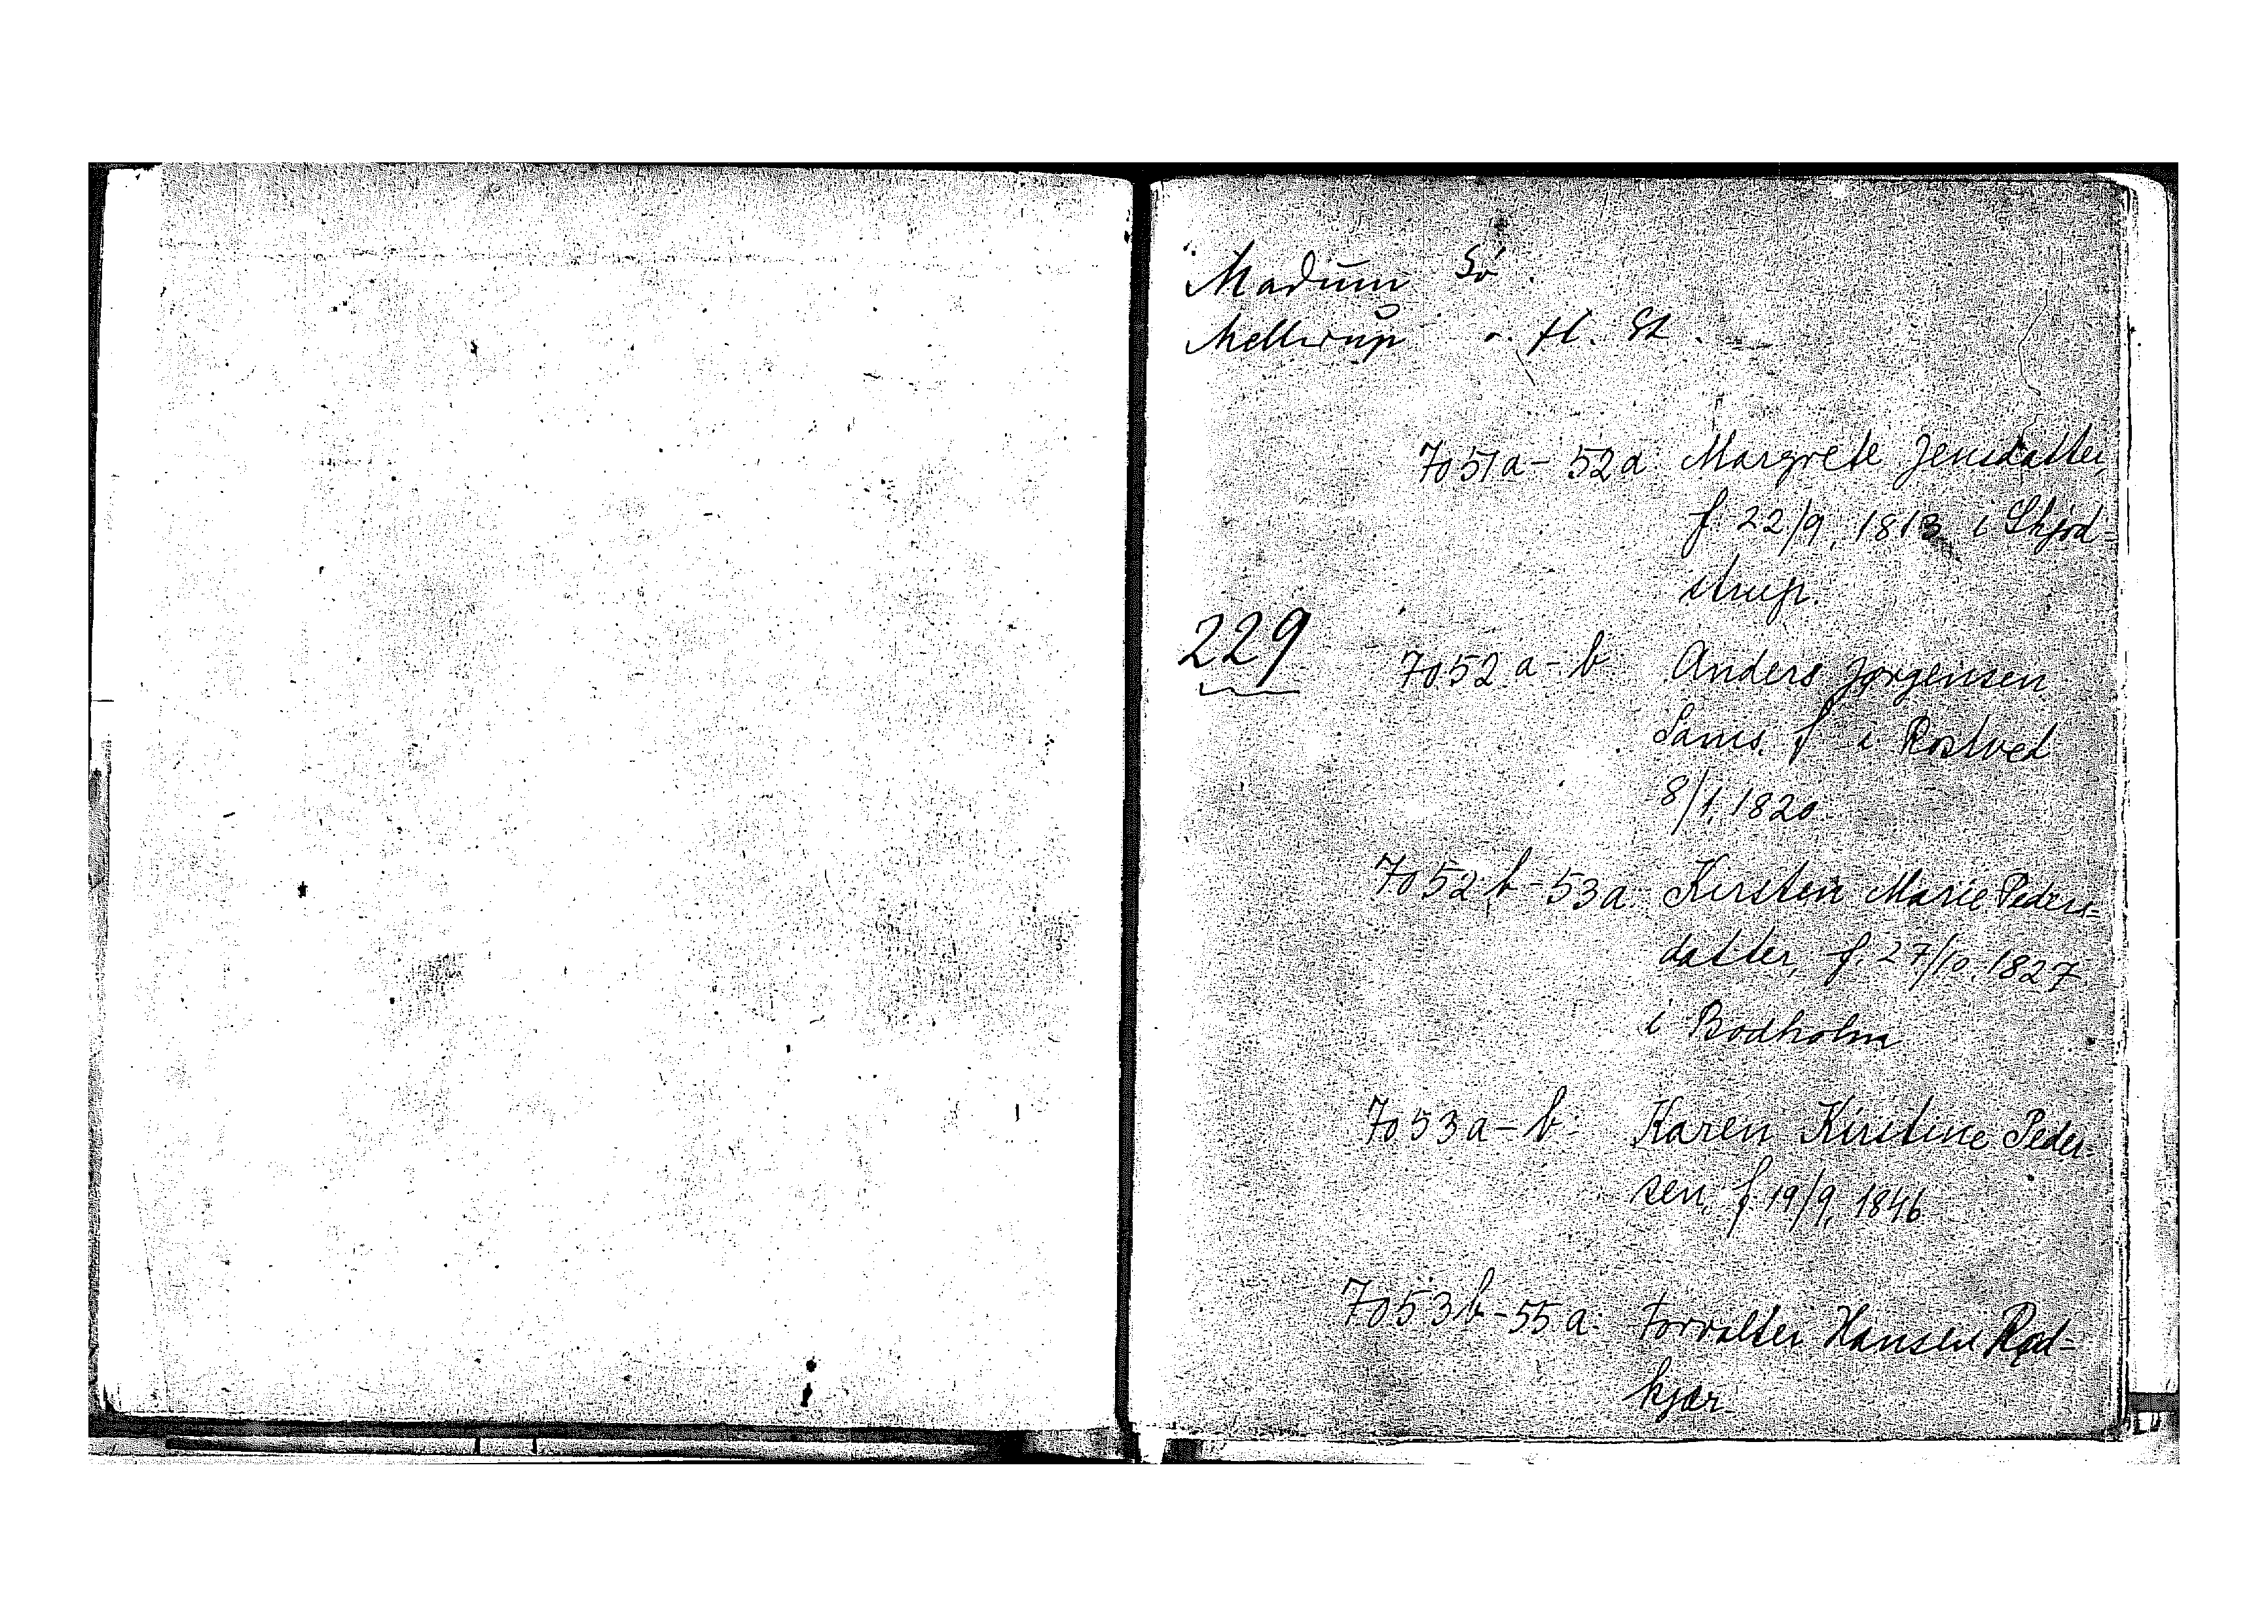 Madum Sø.
Mellerup o. fl. St.
7051a-52a Margrete Jensdatter,
f. 22/9, 1813 i Skjød-
strup.
229
7052a-b Anders Jørgensen
Sams. f i Rostved
8/1, 1820.
7052b-53a. Kirsten Marie Peders-
datter, f. 27/10 1827
i Bodholm
7053a-b: Karen Kirstine Peder-
sen, f. 19/9, 1846
7053b-55a. Forvalter Hansen Rød-
kjær.